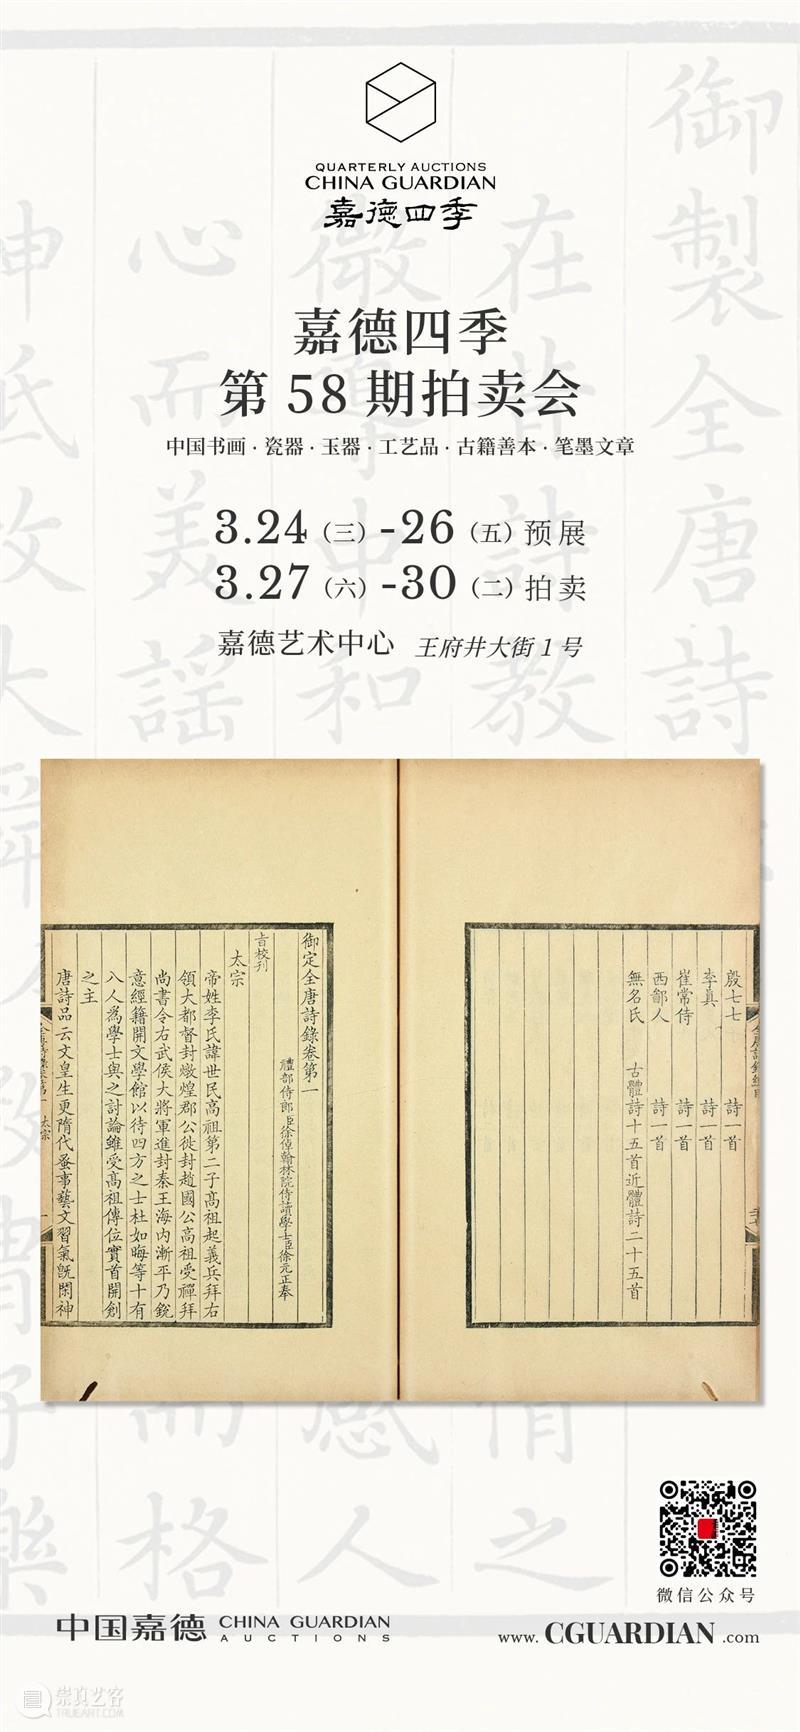 QUARTERLY AUCTIONS
CHINA GUARDIAN
嘉德四季
嘉德四季
第 58 期拍卖会
中国书画 · 瓷器 · 玉器 · 工艺品 · 古籍善本 · 笔墨文章
3.24（三）-26（五）预展
3.27（六）-30（二）拍卖
嘉德艺术中心 王府井大街 1 号
御製全唐詩
在昔詩教
殷七七 詩一首
李真 詩一首
崔常侍 詩一首
西鄙人 詩一首
無名氏 古體詩十五首近體詩二十五首
御定全唐詩錄卷第一
禮部侍郎臣徐倬翰林院侍讀學士臣徐元正奉
旨校刊
太宗
帝姓李氏諱世民高祖第二子高祖起義兵拜右
領大都督封燉煌郡公徙封趙國公高祖受禪拜
尚書令右武侯大將軍進封秦王海内漸平乃銳
意經籍開文學館以待四方之士杜如晦等十有
八人為學士與之討論雖受高祖傳位實首開創
之主
唐詩品云文皇生更隋代蚤事藝文習氣旣閑神
全唐詩錄卷第一 太宗 一
微信公众号
中国嘉德 CHINA GUARDIAN
AUCTIONS
www. CGUARDIAN .com
崇真艺客
TRUEART.COM